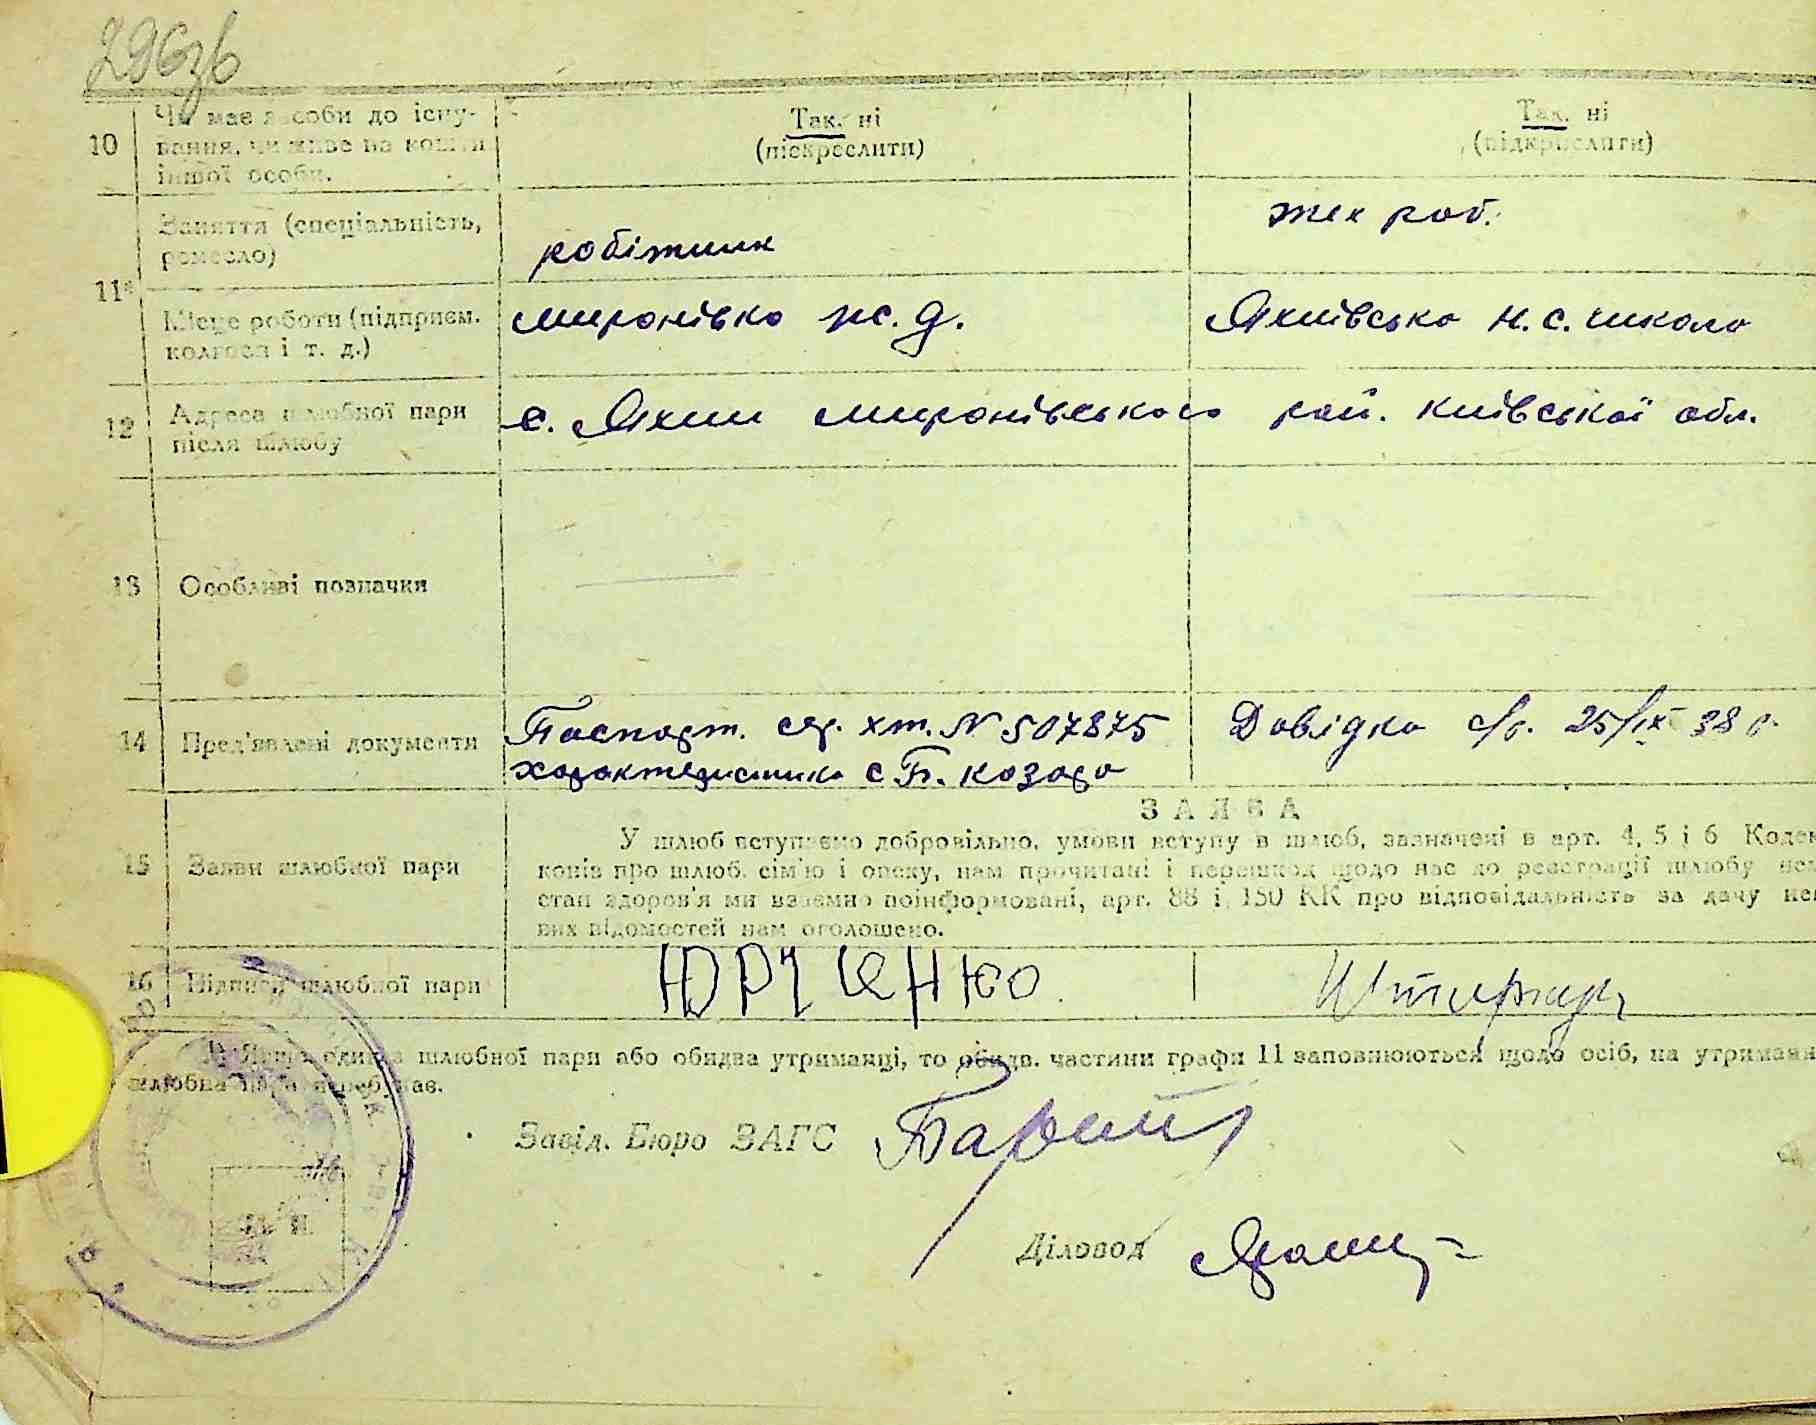 296зв
10 Чи має засоби до існу-
вання, чи живе на кошти
іншої особи.
Так. ні
(підкреслити)
Так. ні
(підкреслити)
11* Заняття (спеціальність,
ремесло)
робітник
тех роб.
Місце роботи (підприєм.
колгосп і т. д.)
Миронівка ж. д.
Яхнівська н. с. школа
12 Адреса шлюбної пари
після шлюбу
с. Яхни Миронівського рай. Київської обл.
13 Особливі позначки
14 Пред'явлені документи
Паспорт. сер. хт. N 507875
характеристика с Б. козаро
Довідка с/р. 25/IX 38 р.
15 Заяви шлюбної пари
ЗАЯВА
У шлюб вступаємо добровільно, умови вступу в шлюб, зазначені в арт. 4, 5 і 6 Кодек
конів про шлюб. сім'ю і опеку, нам прочитані і перешкод щодо нас до реєстрації шлюбу нем
стан здоров'я ми взаємно поінформовані, арт. 88 і 150 КК про відповідальність за дачу не
вих відомостей нам оголошено.
16 Підписи шлюбної пари
ЮРЧЕНКО
1) Якщо один з шлюбної пари або обидва утриманці, то обидв. частини графи 11 заповнюються щодо осіб, на утриманн
шлюбна пара перебуває.
Завід. Бюро ЗАГС
Діловод